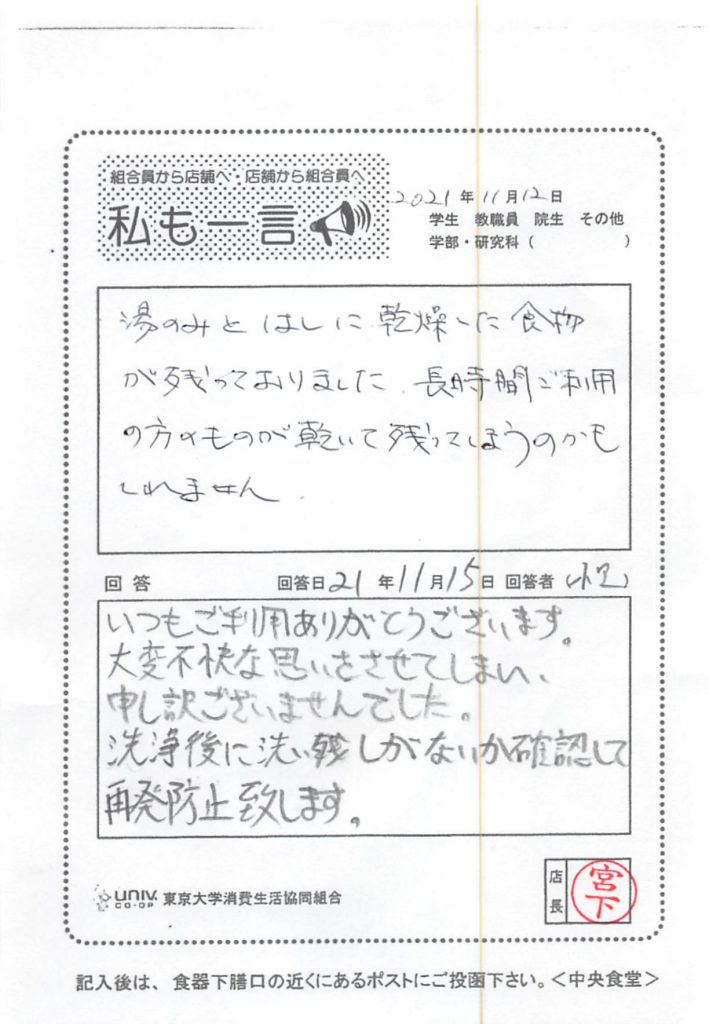 組合員から店舗へ・店舗から組合員へ
私も一言
2021年11月12日
学生 教職員 院生 その他
学部・研究科（ ）
湯のみと はしに 乾燥した 食物
が残っておりました. 長時間ご利用
の方のものが乾いて残ってしまうのかも
しれません.
回 答 回答日 21 年 11 月 15 日 回答者（ ）
いつもご利用ありがとうございます。
大変不快な思いをさせてしまい、
申し訳ございませんでした。
洗浄後に洗い残しがないか確認して
再発防止致します。
UNIV.
CO-OP
東京大学消費生活協同組合
店長
宮下
記入後は、食器下膳口の近くにあるポストにご投函下さい。＜中央食堂＞